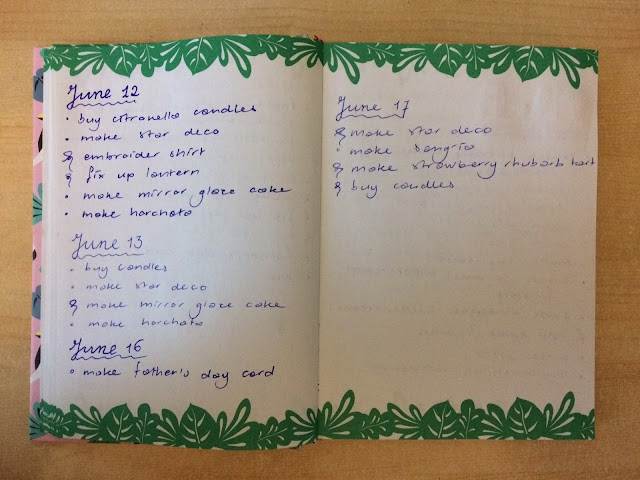 June 12
• buy citronella candles
• make star deco
embroider shirt
fix up lantern
• make mirror glaze cake
• make horchata
June 13
• buy candles
• make star deco
make mirror glaze cake
• make horchata
June 16
• make father's day card
June 17
make star deco
• make sangria
make strawberry rhubarb tart
buy candles